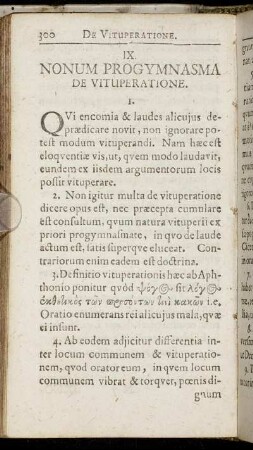 300 DE VITUPERATIONE.
IX.
NONUM PROGYMNASMA
DE VITUPERATIONE.
1.
QVi encomia & laudes alicujus de-
prædicare novit, non ignorare po-
test modum vituperandi. Nam hæc est
eloqventiæ vis, ut, qvem modo laudavit,
eundem ex iisdem argumentorum locis
possit vituperare.
2. Non igitur multa de vituperatione
dicere opus est, nec præcepta cumulare
est consultum, qvum natura vituperii ex
priori progymnasmate, in qvo de laude
actum est, satis superqve eluceat. Con-
trariorum enim eadem est doctrina.
3. Definitio vituperationis hæc ab Aph-
thonio ponitur qvòd ψόγος sit λόγος
ἐκθετικὸς τῶν προσόντων τινὶ κακῶν i.e.
Oratio enumerans rei alicujus mala, qvæ
ei insunt.
4. Ab eodem adjicitur differentia in-
ter locum communem & vituperatio-
nem, qvod orator eum, in qvem locum
communem vibrat & torqvet, pœnis di-
gnum